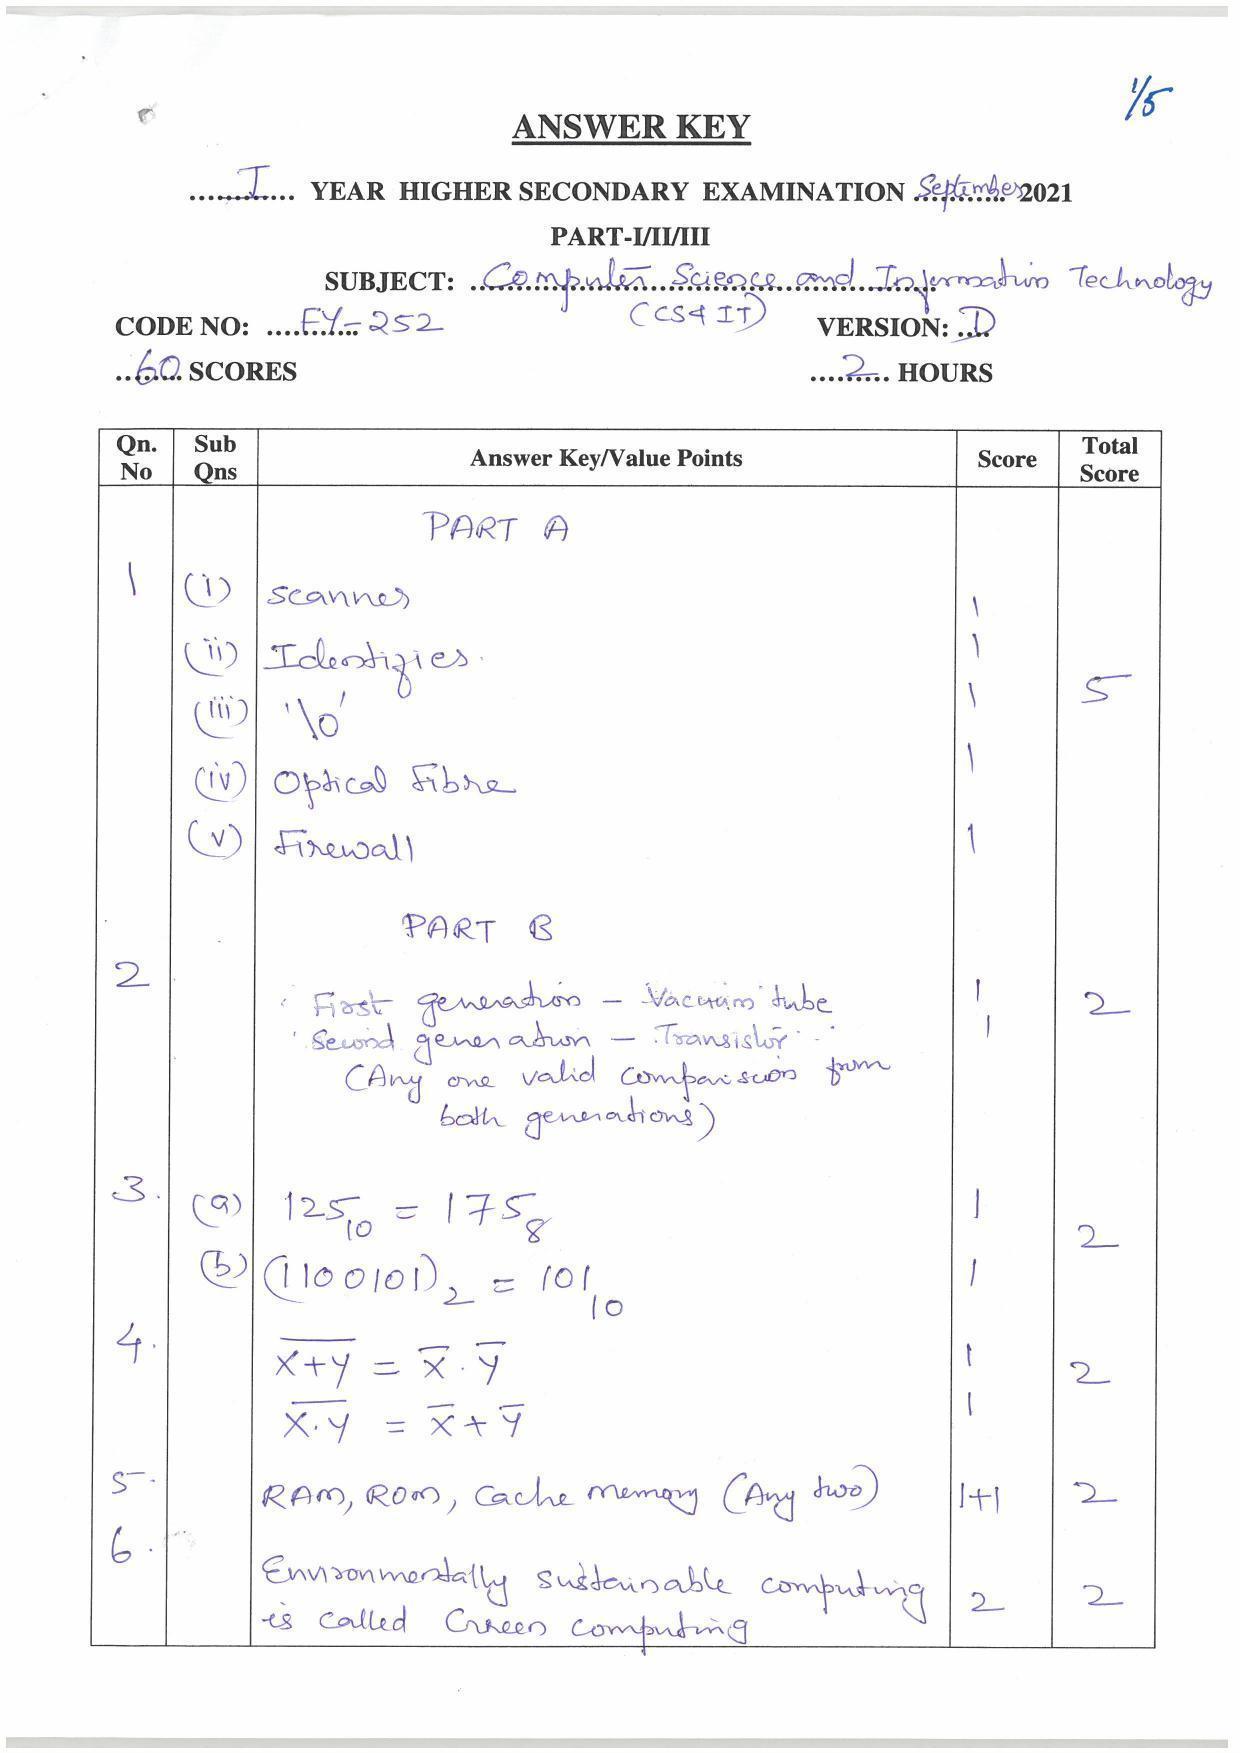 1/5
ANSWER KEY
.......I.... YEAR HIGHER SECONDARY EXAMINATION September 2021
PART-I/II/III
SUBJECT: Computer Science and Information Technology
(CS & IT)
CODE NO: FY-252 VERSION: D
60 SCORES 2 HOURS
Qn. No Sub Qns Answer Key/Value Points Score Total Score
PART A
1 (i) Scanner 1
(ii) Identifies. 1
(iii) '\0' 1 5
(iv) Optical Fibre 1
(v) Firewall 1
PART B
2 First generation – Vaccum tube 1 2
Second generation – Transistor 1
(Any one valid comparision from
both generations)
3. (a) 125₁₀ = 175₈ 1 2
(b) (1100101)₂ = 101₁₀ 1
4. X̅+̅y̅ = x̅ . y̅ 1 2
X̅.̅y̅ = x̅ + y̅ 1
5. RAM, ROM, Cache memory (Any two) 1+1 2
6. Environmentally sustainable computing 2 2
is called Green computing